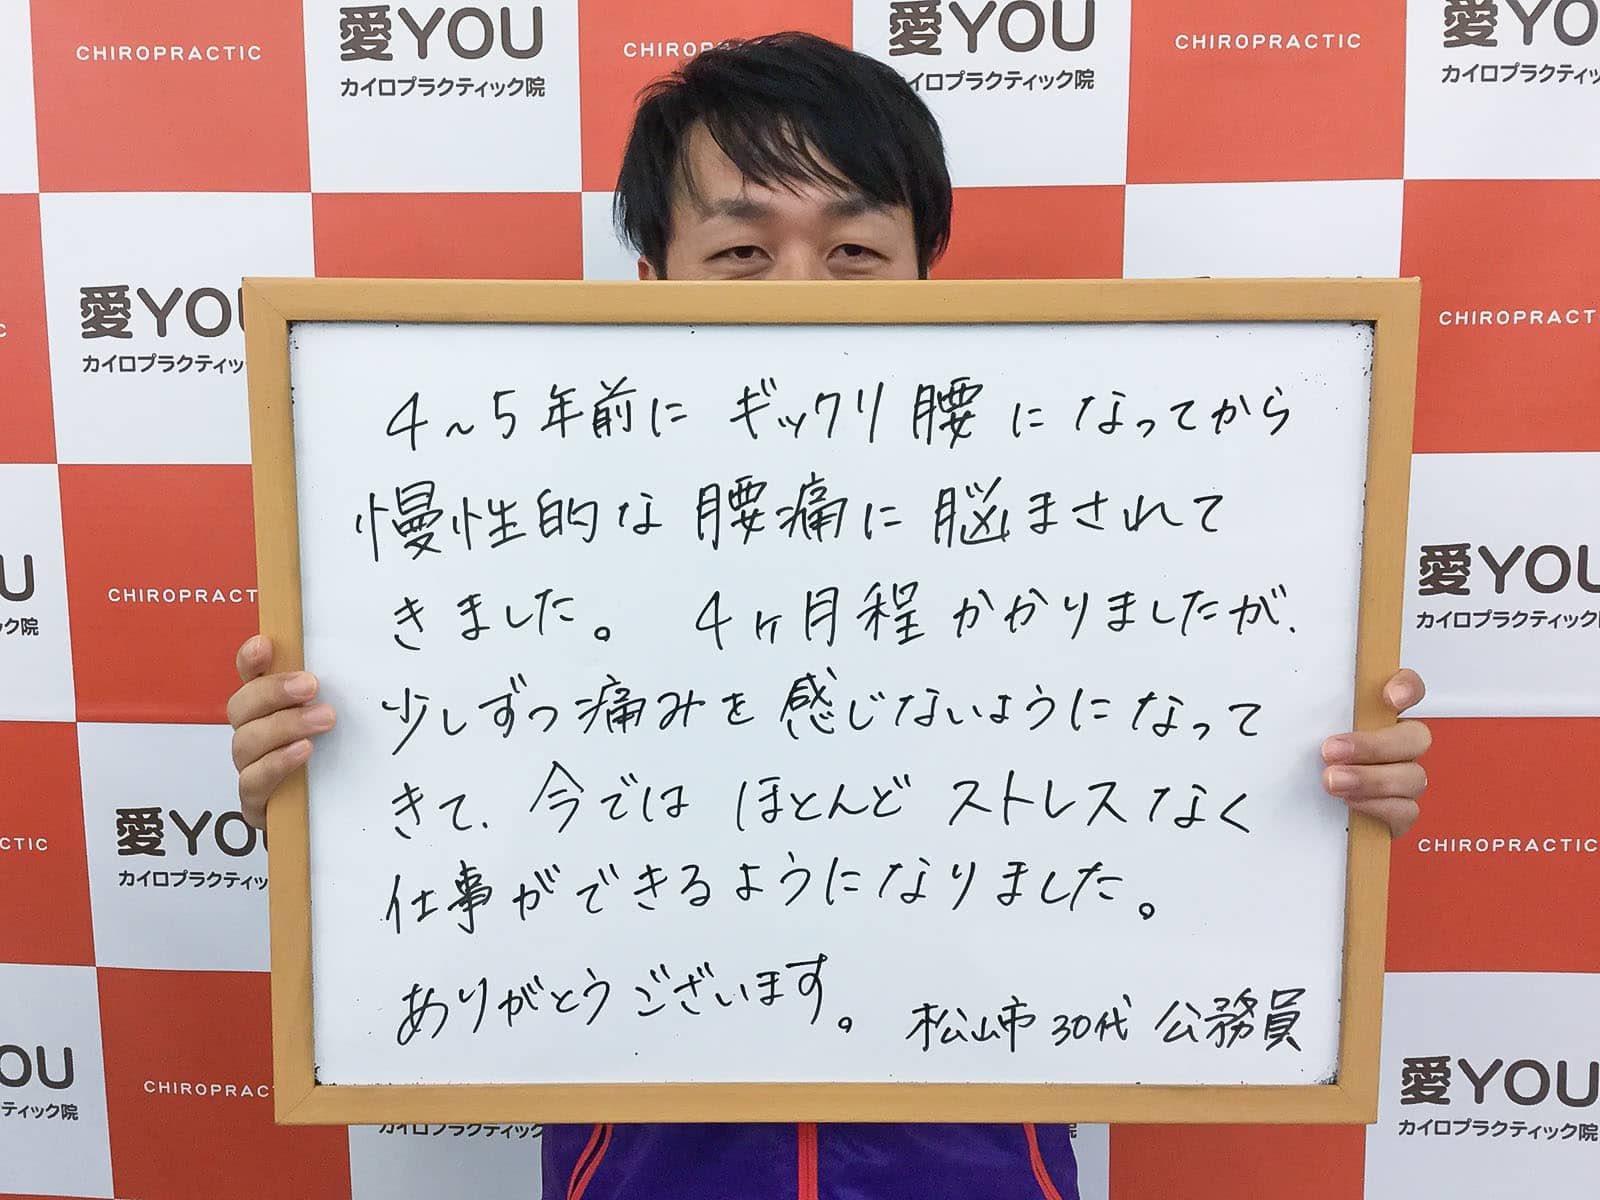 CHIROPRACTIC
愛YOU
カイロプラクティック院
CHIROPRACTIC
愛YOU
カイロプラクティック院
CHIROPRACTIC
愛YO
カイロプラクティッ
愛YOU
カイロプラクティッ
CHIROPRACT
4～5年前にギックリ腰になってから
慢性的な腰痛に脳まされて
きました。 4ヶ月程かかりましたが、
少しずつ痛みを感じないようになって
きて、今ではほとんどストレスなく
仕事ができるようになりました。
ありがとうございます。 松山市 30代 公務員
U
ック院
CHIROPRACT
愛YOU
カイロプラクティ
CTIC
愛YO
カイロプラクティッ
CHIROPRACTIC
OU
ティック院
CHIROPRAC
カイロプラクティック
愛YOU
カイロプラクティック院